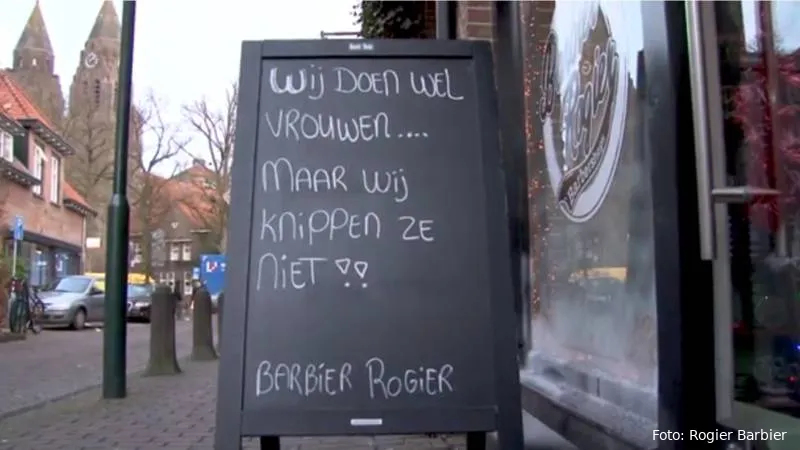 Wij DOEN WEL
VROUWEN....
MAAR Wij
KNiPPEN ZE
NiET !!
BARBiER ROGiER
Rogier
Foto: Rogier Barbier